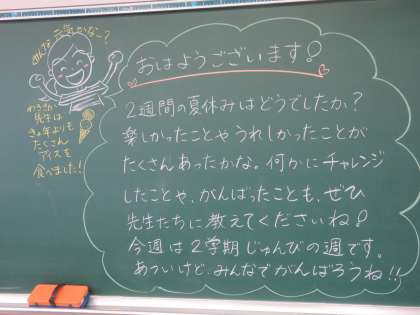 みんな元気かなー?
わきさか
先生は
きょ年よりも
たくさん
アイスを
食べました!
おはようございます!
2週間の夏休みはどうでしたか?
楽しかったことやうれしかったことが
たくさんあったかな。何かにチャレンジ
したことや、がんばったことも、ぜひ
先生たちに教えてくださいね!
今週は2学期じゅんびの週です。
あついけど、みんなでがんばろうね!!